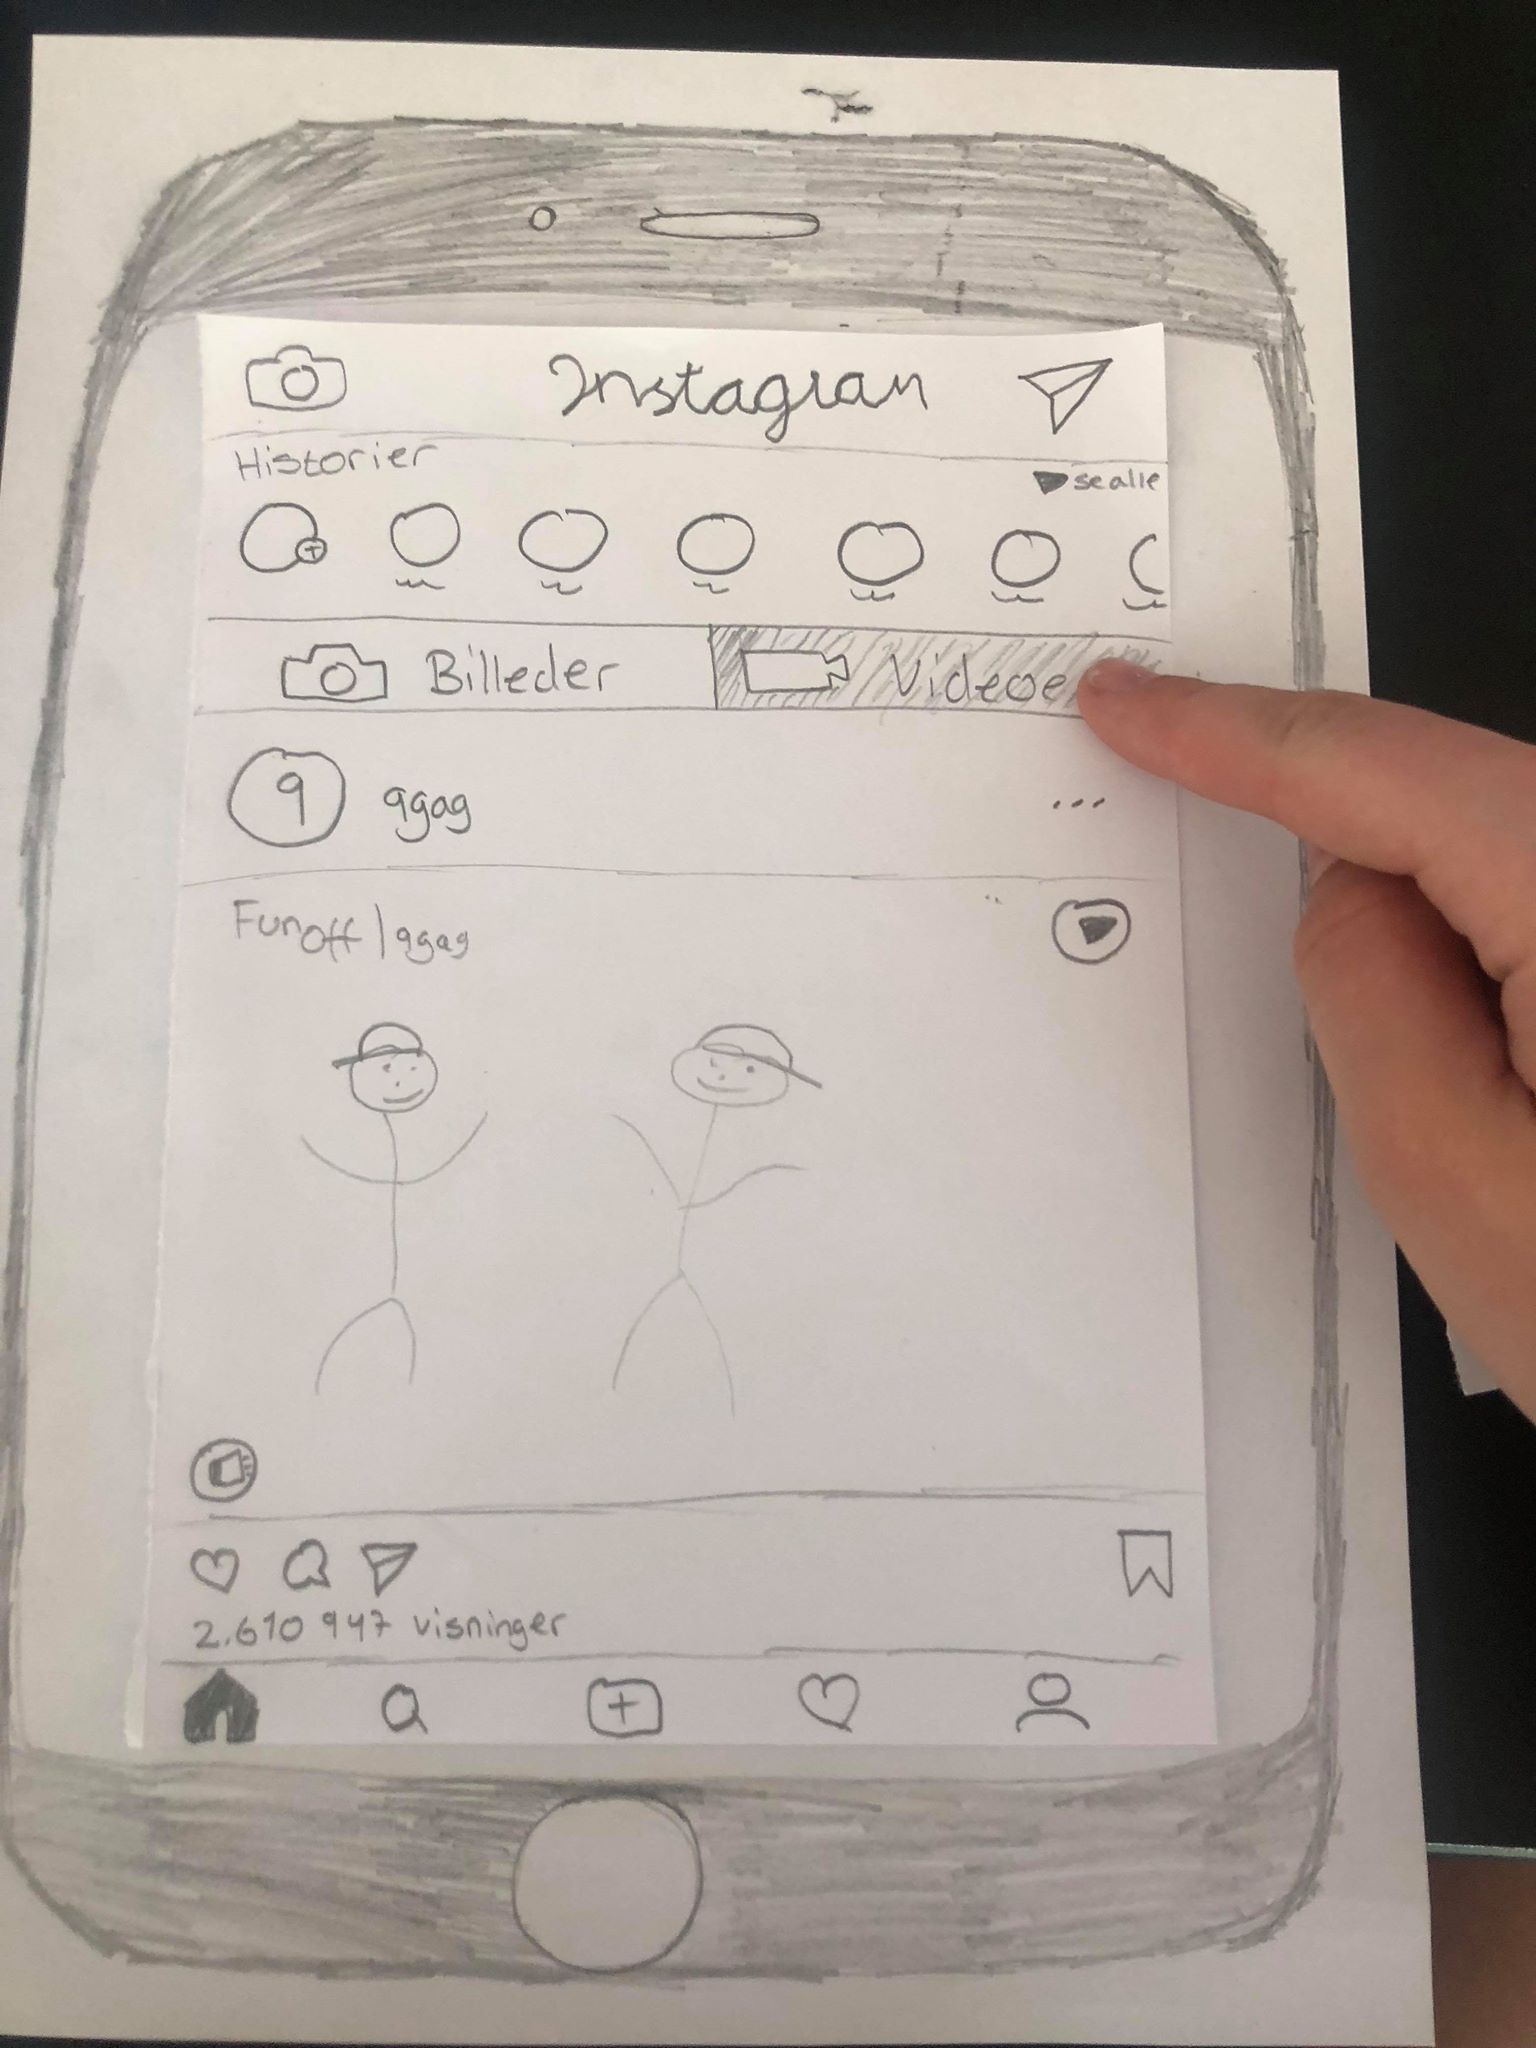 Instagram
Historier
se alle
Billeder
Videoe
9 9gag
...
Fun off | 9gag
2.610 947 visninger